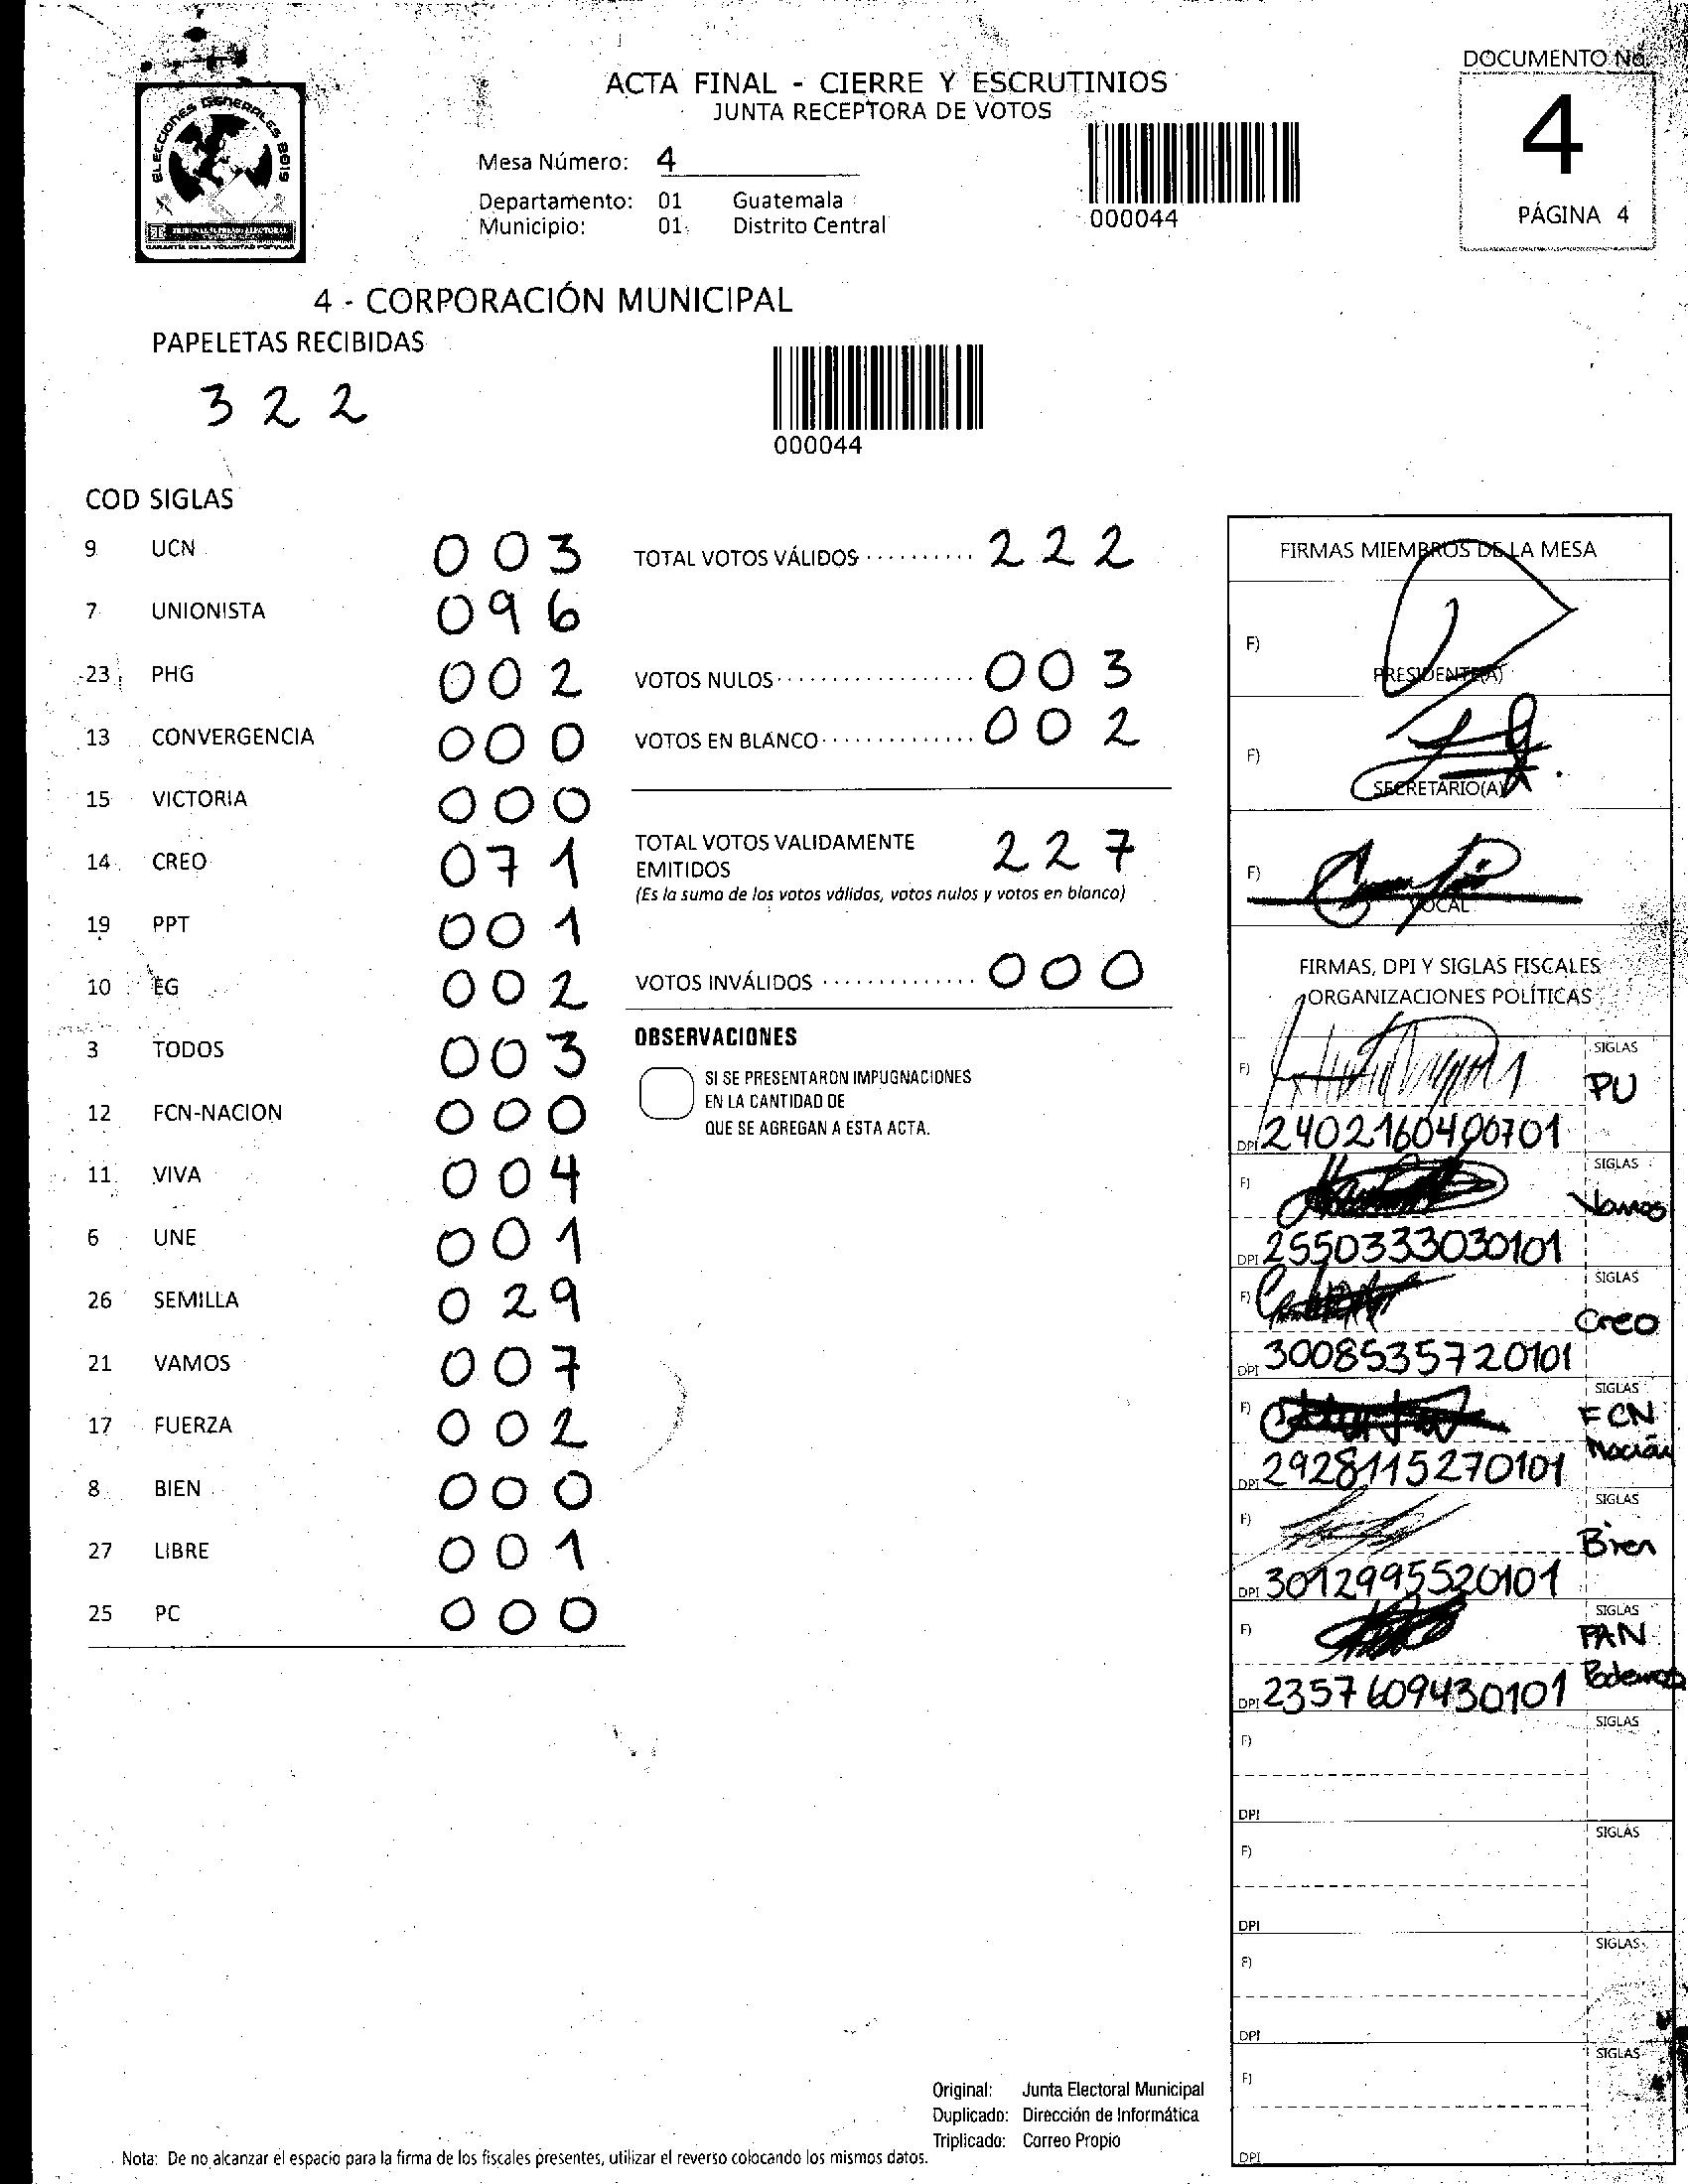 DOCUMENTO No.
ACTA FINAL - CIERRE Y ESCRUTINIOS
JUNTA RECEPTORA DE VOTOS
4
PÁGINA 4
ELECCIONES GENERALES 2019
Mesa Número: 4
Departamento: 01 Guatemala
Municipio: 01 Distrito Central
000044
4 - CORPORACIÓN MUNICIPAL
PAPELETAS RECIBIDAS
3 2 2
000044
COD SIGLAS
9 UCN 003
7 UNIONISTA 096
23 PHG 002
13 CONVERGENCIA 000
15 VICTORIA 000
14 CREO 071
19 PPT 001
10 EG 002
3 TODOS 003
12 FCN-NACION 000
11 VIVA 004
6 UNE 001
26 SEMILLA 029
21 VAMOS 007
17 FUERZA 002
8 BIEN 000
27 LIBRE 001
25 PC 000
TOTAL VOTOS VÁLIDOS 222
VOTOS NULOS 003
VOTOS EN BLANCO 002
TOTAL VOTOS VALIDAMENTE
EMITIDOS 227
(Es la suma de los votos válidos, votos nulos y votos en blanco)
VOTOS INVÁLIDOS 000
OBSERVACIONES
SI SE PRESENTARON IMPUGNACIONES
EN LA CANTIDAD DE
QUE SE AGREGAN A ESTA ACTA.
FIRMAS MIEMBROS DE LA MESA
F)
PRESIDENTE(A)
F)
SECRETARIO(A)
F)
VOCAL
FIRMAS, DPI Y SIGLAS FISCALES
ORGANIZACIONES POLÍTICAS
F) SIGLAS
PU
DPI 2402160400701
F) SIGLAS
Vamos
DPI 2550333030101
F) SIGLAS
Creo
DPI 3008535720101
F) SIGLAS
FCN
Nación
DPI 2928115270101
F) SIGLAS
Bien
DPI 3012995520101
F) SIGLAS
PAN
Podemos
DPI 2357609430101
F) SIGLAS
DPI
F) SIGLAS
DPI
F) SIGLAS
DPI
F) SIGLAS
DPI
Original: Junta Electoral Municipal
Duplicado: Dirección de Informática
Triplicado: Correo Propio
Nota: De no alcanzar el espacio para la firma de los fiscales presentes, utilizar el reverso colocando los mismos datos.